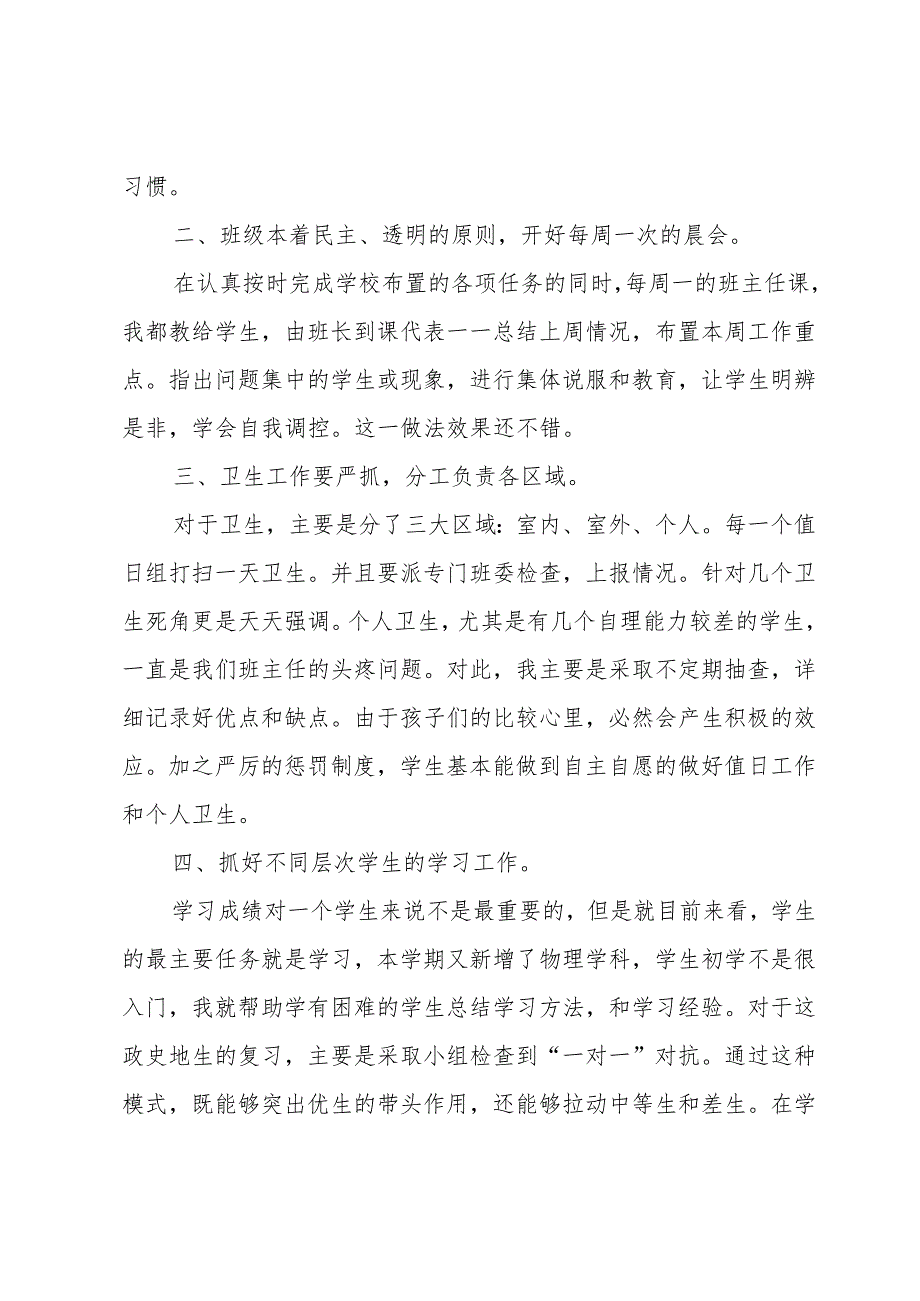 习惯。
二、班级本着民主、透明的原则，开好每周一次的晨会。
在认真按时完成学校布置的各项任务的同时，每周一的班主任课，
我都教给学生，由班长到课代表一一总结上周情况，布置本周工作重
点。指出问题集中的学生或现象，进行集体说服和教育，让学生明辨
是非，学会自我调控。这一做法效果还不错。
三、卫生工作要严抓，分工负责各区域。
对于卫生，主要是分了三大区域：室内、室外、个人。每一个值
日组打扫一天卫生。并且要派专门班委检查，上报情况。针对几个卫
生死角更是天天强调。个人卫生，尤其是有几个自理能力较差的学生，
一直是我们班主任的头疼问题。对此，我主要是采取不定期抽查，详
细记录好优点和缺点。由于孩子们的比较心里，必然会产生积极的效
应。加之严厉的惩罚制度，学生基本能做到自主自愿的做好值日工作
和个人卫生。
四、抓好不同层次学生的学习工作。
学习成绩对一个学生来说不是最重要的，但是就目前来看，学生
的最主要任务就是学习，本学期又新增了物理学科，学生初学不是很
入门，我就帮助学有困难的学生总结学习方法，和学习经验。对于这
政史地生的复习，主要是采取小组检查到“一对一”对抗。通过这种
模式，既能够突出优生的带头作用，还能够拉动中等生和差生。在学